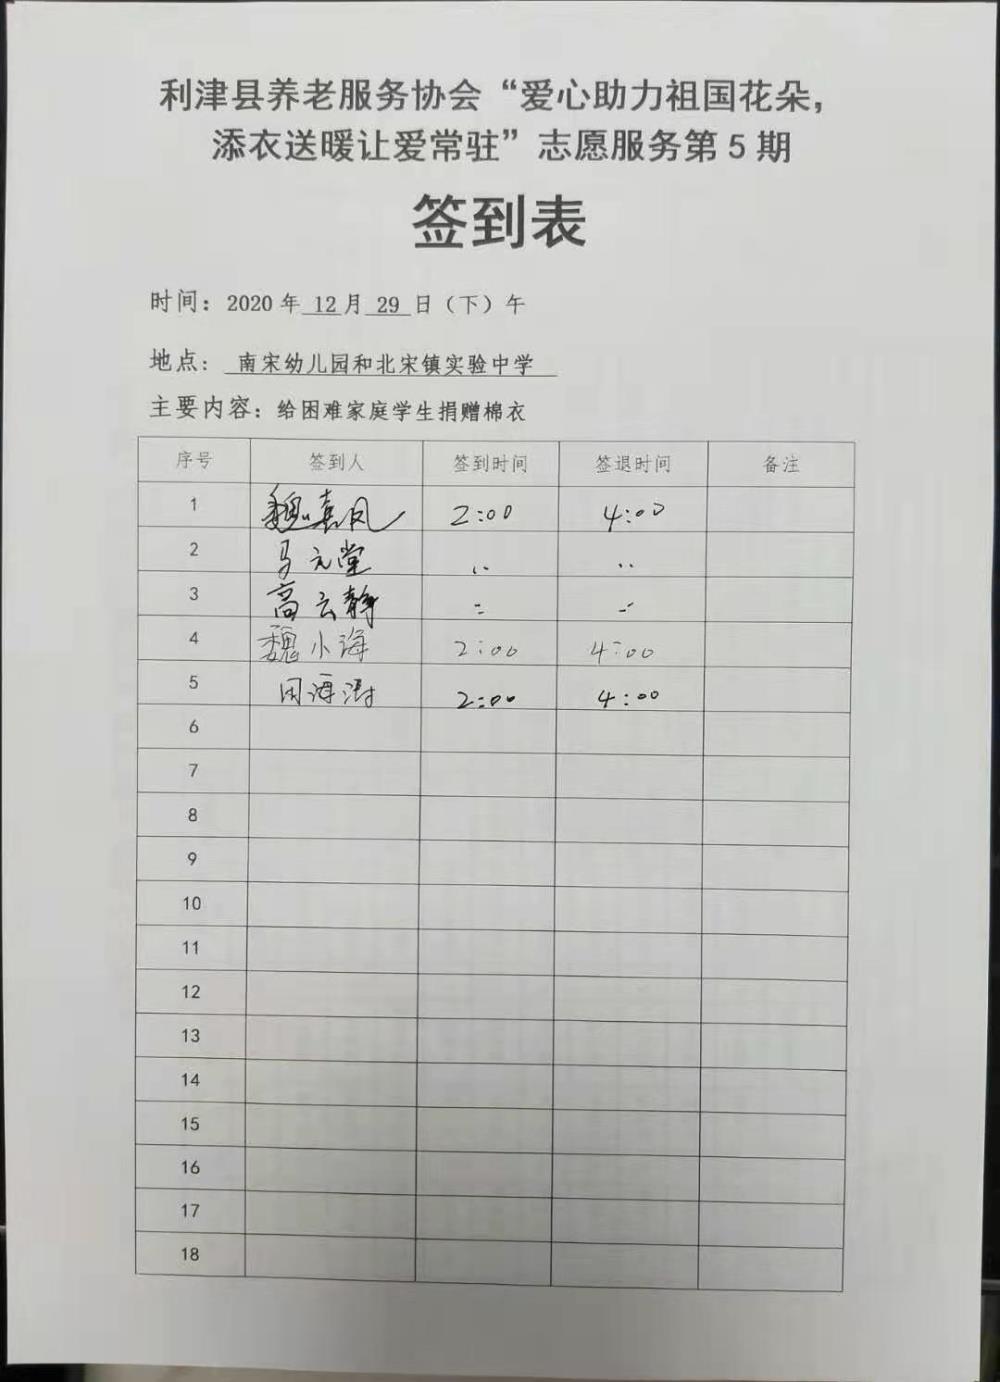 利津县养老服务协会“爱心助力祖国花朵，
添衣送暖让爱常驻”志愿服务第5期
签到表
时间：2020年 12 月 29 日（下）午
地点： 南宋幼儿园和北宋镇实验中学
主要内容：给困难家庭学生捐赠棉衣
序号 签到人 签到时间 签退时间 备注
1 魏嘉凤 2:00 4:00
2 马元堂 ,, ,,
3 高云静 = =
4 魏小海 2:00 4:00
5 周海涛 2:00 4:00
6
7
8
9
10
11
12
13
14
15
16
17
18